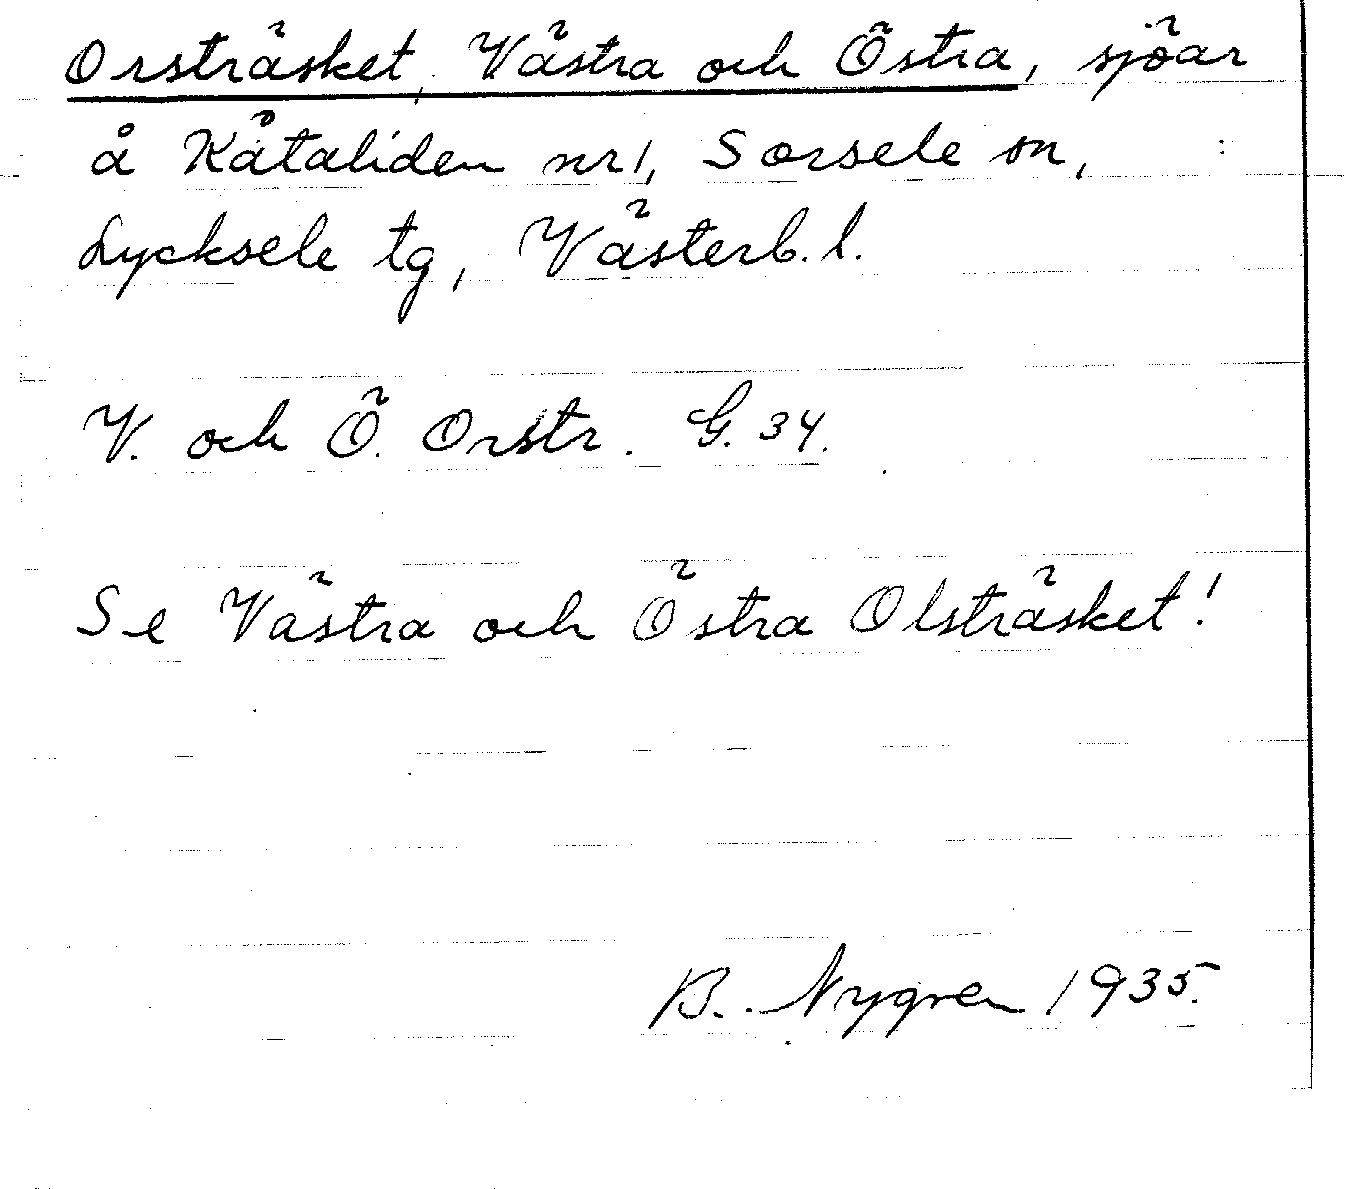 Orsträsket, Västra och Östra, sjöar
å Kåtaliden nr 1, Sorsele sn,
Lycksele tg, Västerb. l.
V. och Ö. Orstr. G. 34.
Se Västra och Östra Olsträsket!
B. Nygren 1935.